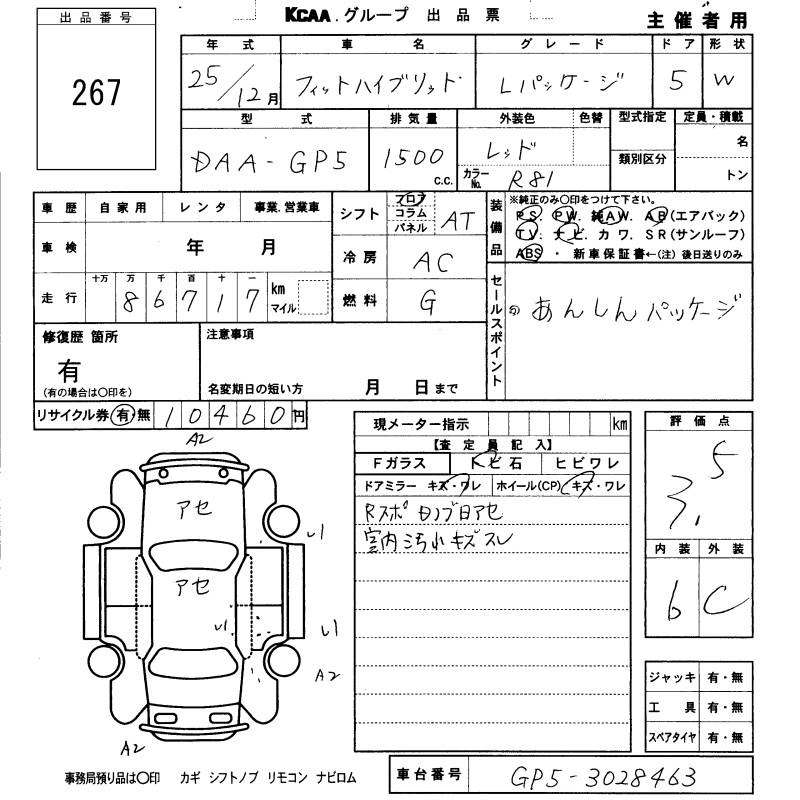 出品番号 KCAA グループ 出品票 主催者用
267
年式 車名 グレード ドア 形状
25/12月 フィットハイブリッド Lパッケージ 5 W
型式 排気量 外装色 色替 型式指定 定員・積載
DAA-GP5 1500 c.c. レッド 名
カラーNo. R81 類別区分 トン
車歴 自家用 レンタ 事業.営業車 シフト フロア コラム パネル AT 装備品 ※純正のみ○印をつけて下さい。
PS. PW. 純AW. AB(エアバック)
TV. ナビ. カワ. SR(サンルーフ)
ABS ・ 新車保証書←(注)後日送りのみ
車検 年 月 冷房 AC
走行 十万 万 千 百 十 一 km マイル 燃料 G
8 6 7 1 7
セールスポイント あんしんパッケージ
修復歴 箇所 注意事項
有
(有の場合は○印を) 名変期日の短い方 月 日まで
リサイクル券 有・無 10460円
現メーター指示 km
【査定員記入】
Fガラス トビ石 ヒビワレ
ドアミラー キズ・ワレ ホイール(CP) キズ・ワレ
室内汚れキズスレ
評価点
3.5
内装 外装
6 C
A2
アセ
アセ
A2
A2
ジャッキ 有・無
工具 有・無
スペアタイヤ 有・無
事務局預り品は○印 カギ シフトノブ リモコン ナビロム
車台番号 GP5-3028463